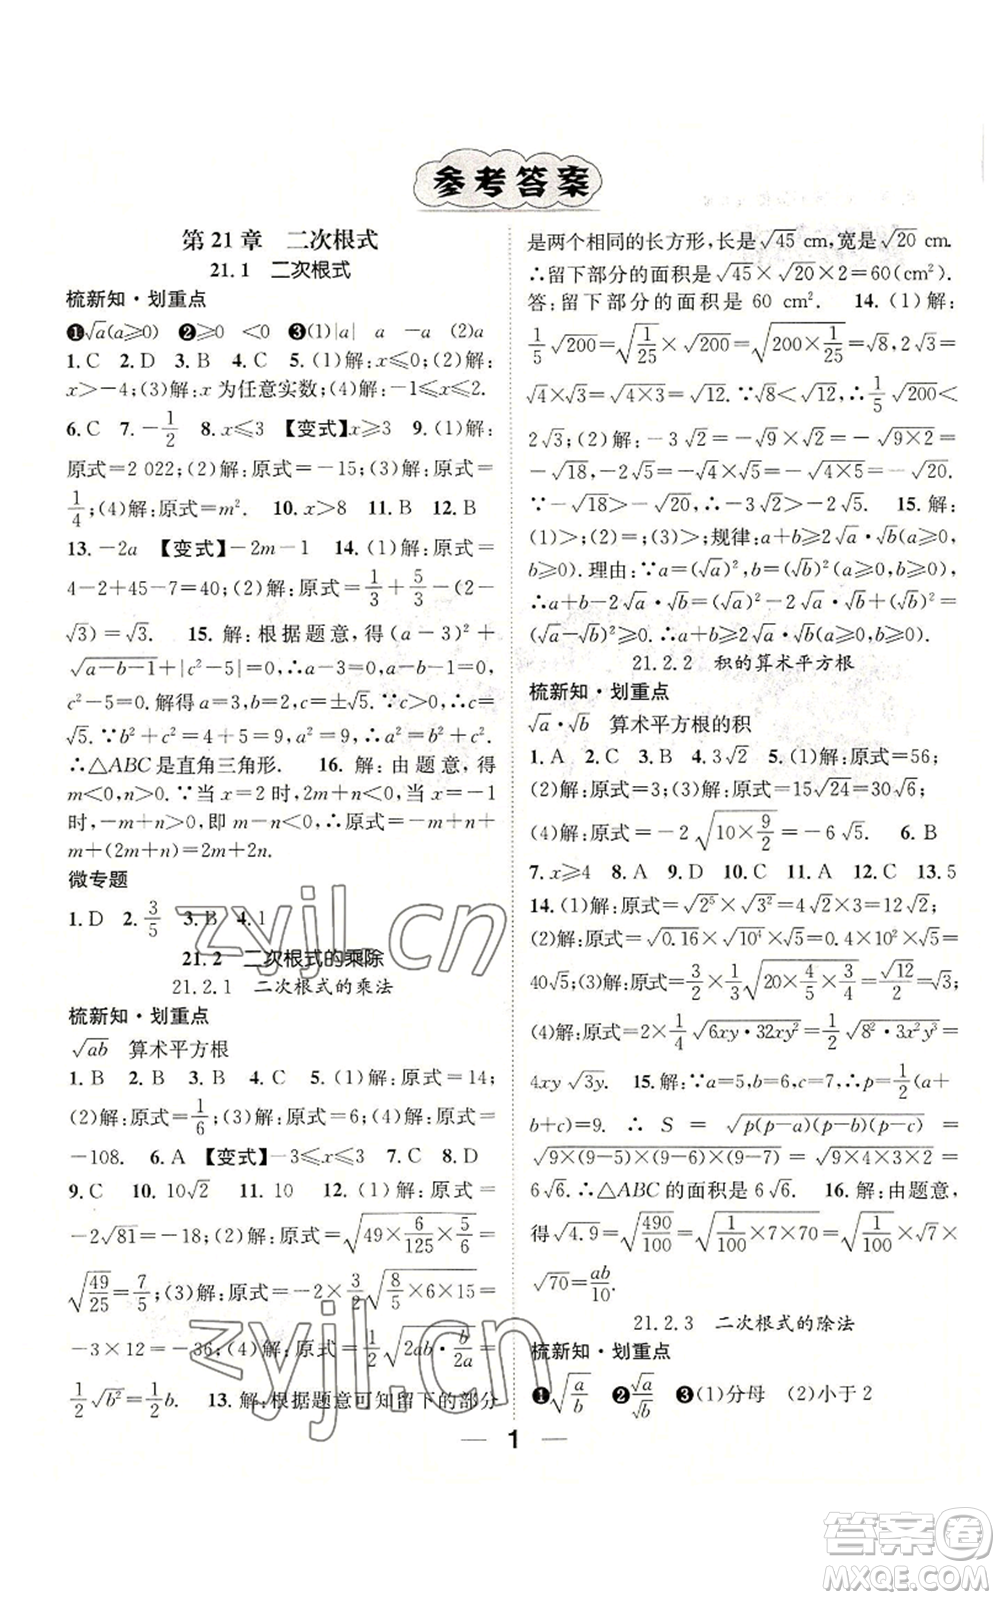 参考答案
第 21 章 二次根式
21. 1 二次根式
梳新知·划重点
❶√a(a≥0) ❷≥0 <0 ❸(1)|a| a －a (2)a
1. C 2. D 3. B 4. C 5. (1)解:x≤0;(2)解:
x>－4;(3)解:x 为任意实数;(4)解:－1≤x≤2.
6. C 7. －1/2 8. x≤3 【变式】x≥3 9. (1)解:
原式=2 022;(2)解:原式=－15;(3)解:原式=
1/4;(4)解:原式=m². 10. x>8 11. B 12. B
13. －2a 【变式】－2m－1 14. (1)解:原式=
4－2+45－7=40;(2)解:原式=1/3+5/3－(2－
√3)=√3. 15. 解:根据题意,得(a－3)²+
√(a－b－1)+|c²－5|=0,∴a－3=0,a－b－1=0,
c²－5=0.解得a=3,b=2,c=±√5.∵c>0,∴c=
√5.∵b²+c²=4+5=9,a²=9,∴a²=b²+c²,
∴△ABC是直角三角形. 16. 解:由题意,得
m<0,n>0.∵当 x=2 时,2m+n>0,当 x=－1
时,－m+n>0,即 m－n<0,∴原式=－m+n+
m+(2m+n)=2m+2n.
微专题
1. D 2. 3/5 3. B 4. 1
21. 2 二次根式的乘除
21. 2. 1 二次根式的乘法
梳新知·划重点
√ab 算术平方根
1. B 2. B 3. B 4. C 5. (1)解:原式=14;
(2)解:原式=1/6;(3)解:原式=6;(4)解:原式=
－108. 6. A 【变式】－3≤x≤3 7. C 8. D
9. C 10. 10√2 11. 10 12. (1)解:原式=
－2√81=－18;(2)解:原式=√(49×6/125×5/6)=
√(49/25)=7/5;(3)解:原式=－2×3/2√(8/5×6×15)=
－3×12=－36;(4)解:原式=1/2√(2ab·b/2a)=
1/2√b²=1/2b. 13. 解:根据题意可知留下的部分
是两个相同的长方形,长是√45 cm,宽是√20 cm.
∴留下部分的面积是√45×√20×2=60(cm²).
答:留下部分的面积是 60 cm². 14. (1)解:
1/5√200=√(1/25)×√200=√(200×1/25)=√8,2√3=
√4×√3=√(4×3)=√12.∵√8<√12,∴1/5√200<
2√3;(2)解:－3√2=－√9×√2=－√(9×2)=
－√18,－2√5=－√4×√5=－√(4×5)=－√20.
∵－√18>－√20,∴－3√2>－2√5. 15. 解:
(1)>;(2)=;(3)>;规律:a+b≥2√a·√b(a≥0,
b≥0).理由:∵a=(√a)²(a≥0),b=(√b)²(b≥0),
∴a+b－2√a·√b=(√a)²－2√a·√b+(√b)²=
(√a－√b)²≥0.∴a+b≥2√a·√b.
21. 2. 2 积的算术平方根
梳新知·划重点
√a·√b 算术平方根的积
1. A 2. C 3. B 4. 3√2 5. (1)解:原式=56;
(2)解:原式=3;(3)解:原式=15√24=30√6;
(4)解:原式=－2√(10×9/2)=－6√5. 6. B
7. x≥4 8. C 9. C 10. C 11. A 12. C 13. 5
14. (1)解:原式=√2⁵×√3²=4√2×3=12√2;
(2)解:原式=√0.16×√10⁴×√5=0.4×10²×√5=
40√5;(3)解:原式=3/2×1/3√(20×3/20)=√12/2=√3;
(4)解:原式=2×1/4√(6xy·32xy²)=1/2√(8²·3x²y³)=
4xy√3y. 15. 解:∵a=5,b=6,c=7,∴p=1/2(a+
b+c)=9. ∴ S = √(p(p－a)(p－b)(p－c)) =
√(9×(9－5)×(9－6)×(9－7))=√(9×4×3×2)=
6√6,∴△ABC的面积是6√6. 16. 解:由题意,
得√4.9=√(490/100)=√(1/100×7×70)=√(1/100)×√7×
√70=ab/10.
21. 2. 3 二次根式的除法
梳新知·划重点
❶√(a/b) ❷√a/√b ❸(1)分母 (2)小于 2
1
zyjl.cn
zyjl.cn
答案卷
MXQE.COM